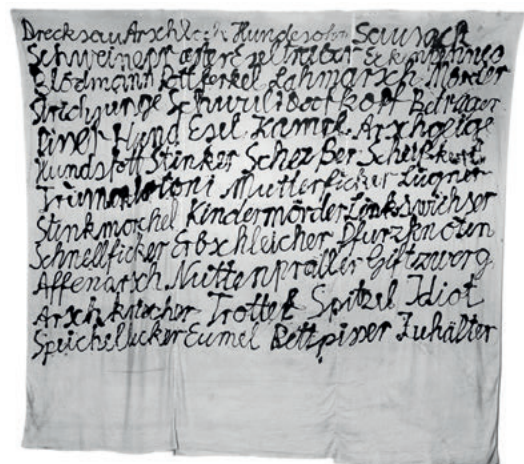 Drecksau Arschloch Hundesohn Sausack
Schweinepriester Eseltreiber
Blödmann Dreckferkel Lahmarsch Mörder
Strichjunge Betrüger
Hund Esel Kamel Arschgeige
Hundsfott Stinker Scheißer Scheißkerl
Mutterficker Lügner
Stinkmorchel Kindermörder Linkswichser
Schnellficker Erbschleicher Pfurzknoten
Affenarsch Nuttenpraller Giftzwerg
Arschkriecher Trottel Spitzel Idiot
Speichellecker Eumel Bettpisser Zuhälter